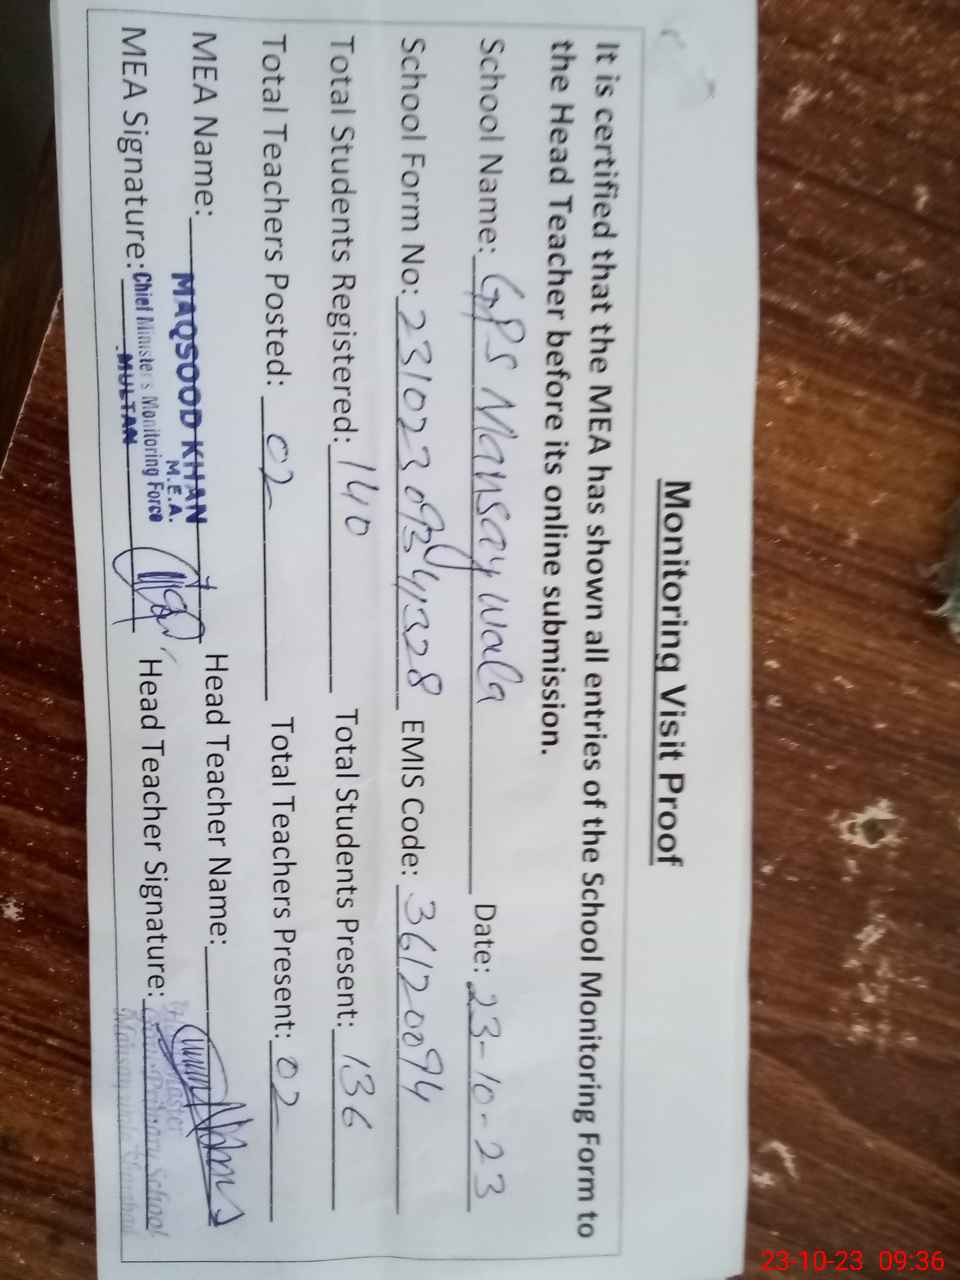 Monitoring Visit Proof
It is certified that the MEA has shown all entries of the School Monitoring Form to
the Head Teacher before its online submission.
School Name: GPS Mansaywala Date: 23-10-23
School Form No: 231023 EMIS Code: 36120094
Total Students Registered: 140 Total Students Present: 136
Total Teachers Posted: 02 Total Teachers Present: 02
MEA Name: MAQSOOD KHAN Head Teacher Name:
M.E.A.
MEA Signature: Chief Minister's Monitoring Force Head Teacher Signature:
MULTAN
Primary School
23-10-23 09:36